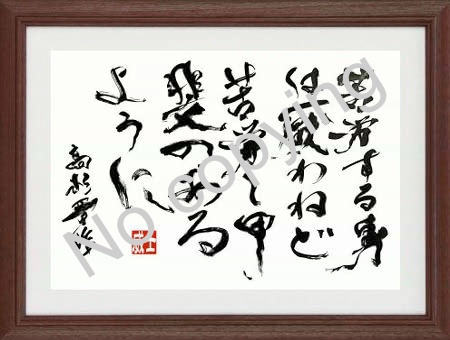 苦労する身
は厭わねど
苦労し甲
斐のある
ように
高杉晋作
No copying